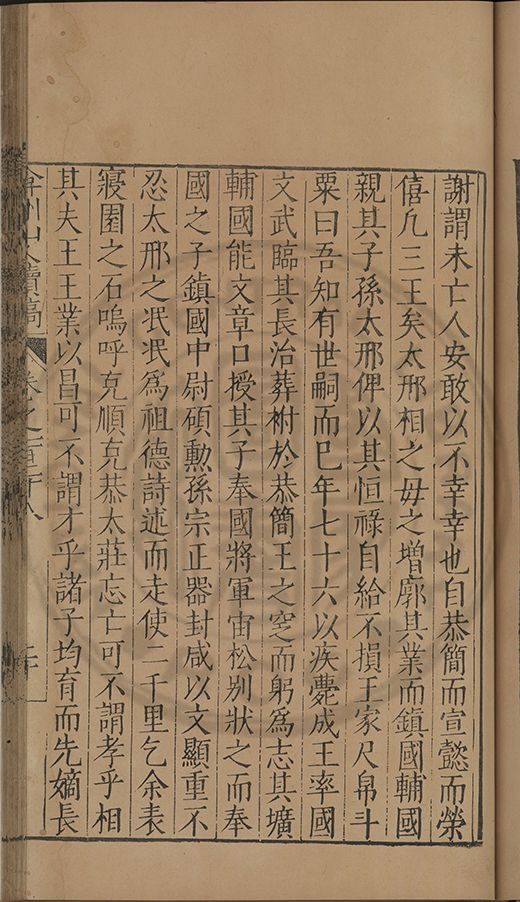 謝謂未亡人安敢以不幸幸也自恭簡而宣懿而榮
僖凢三王矣太邢相之毋之增廓其業而鎮國輔國
親其子孫太邢俾以其恒祿自給不損王家尺帛斗
粟曰吾知有世嗣而巳年七十六以疾薨成王率國
文武臨其長治葬祔於恭簡王之窆而躬爲志其壙
輔國能文章口授其子奉國將軍宙松别狀之而奉
國之子鎮國中尉碩勲孫宗正器封咸以文顯重不
忍太邢之泯泯爲祖德詩述而走使二千里乞余表
寢園之石嗚呼克順克恭太莊忘亡可不謂孝乎相
其夫王王業以昌可不謂才乎諸子均育而先嫡長
弇州山人續稿 卷之一百廿八